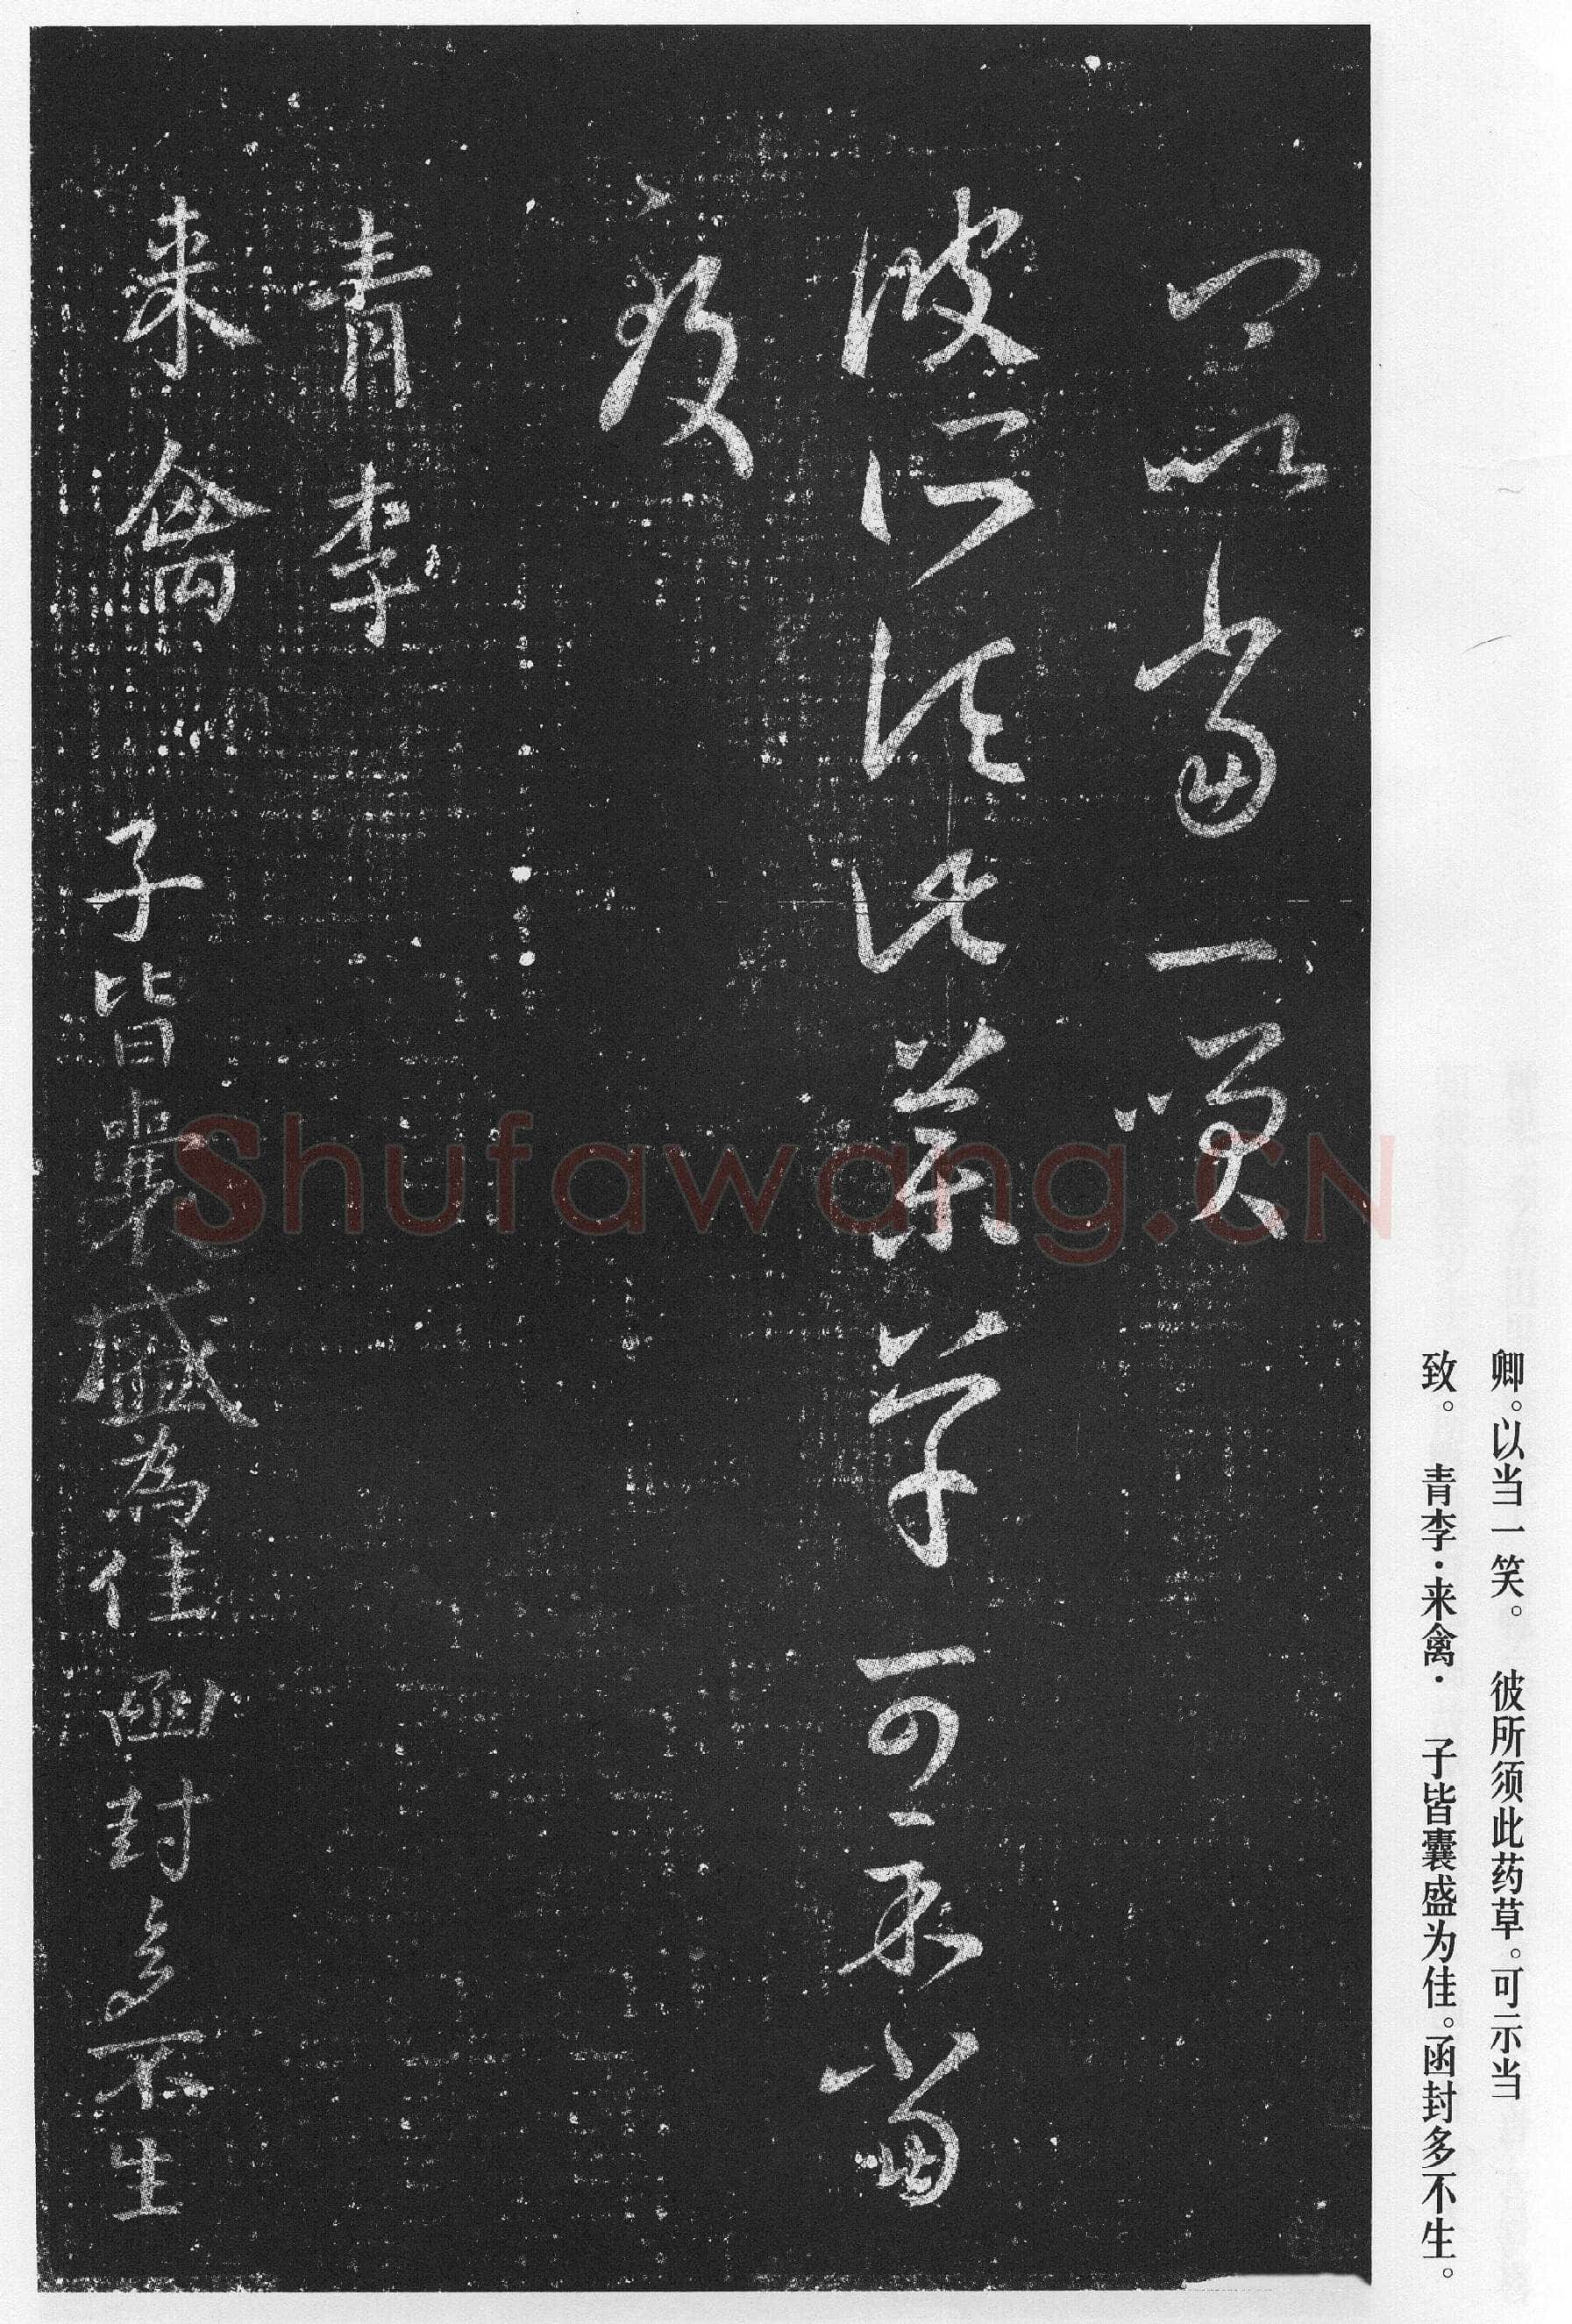 卿。以当一笑。 彼所须此药草。可示当
致。 青李·来禽· 子皆囊盛为佳。函封多不生。
卿以當一笑
彼所須此藥草可示當
致
青李
来禽 子皆囊盛為佳函封多不生
Shufawang.CN